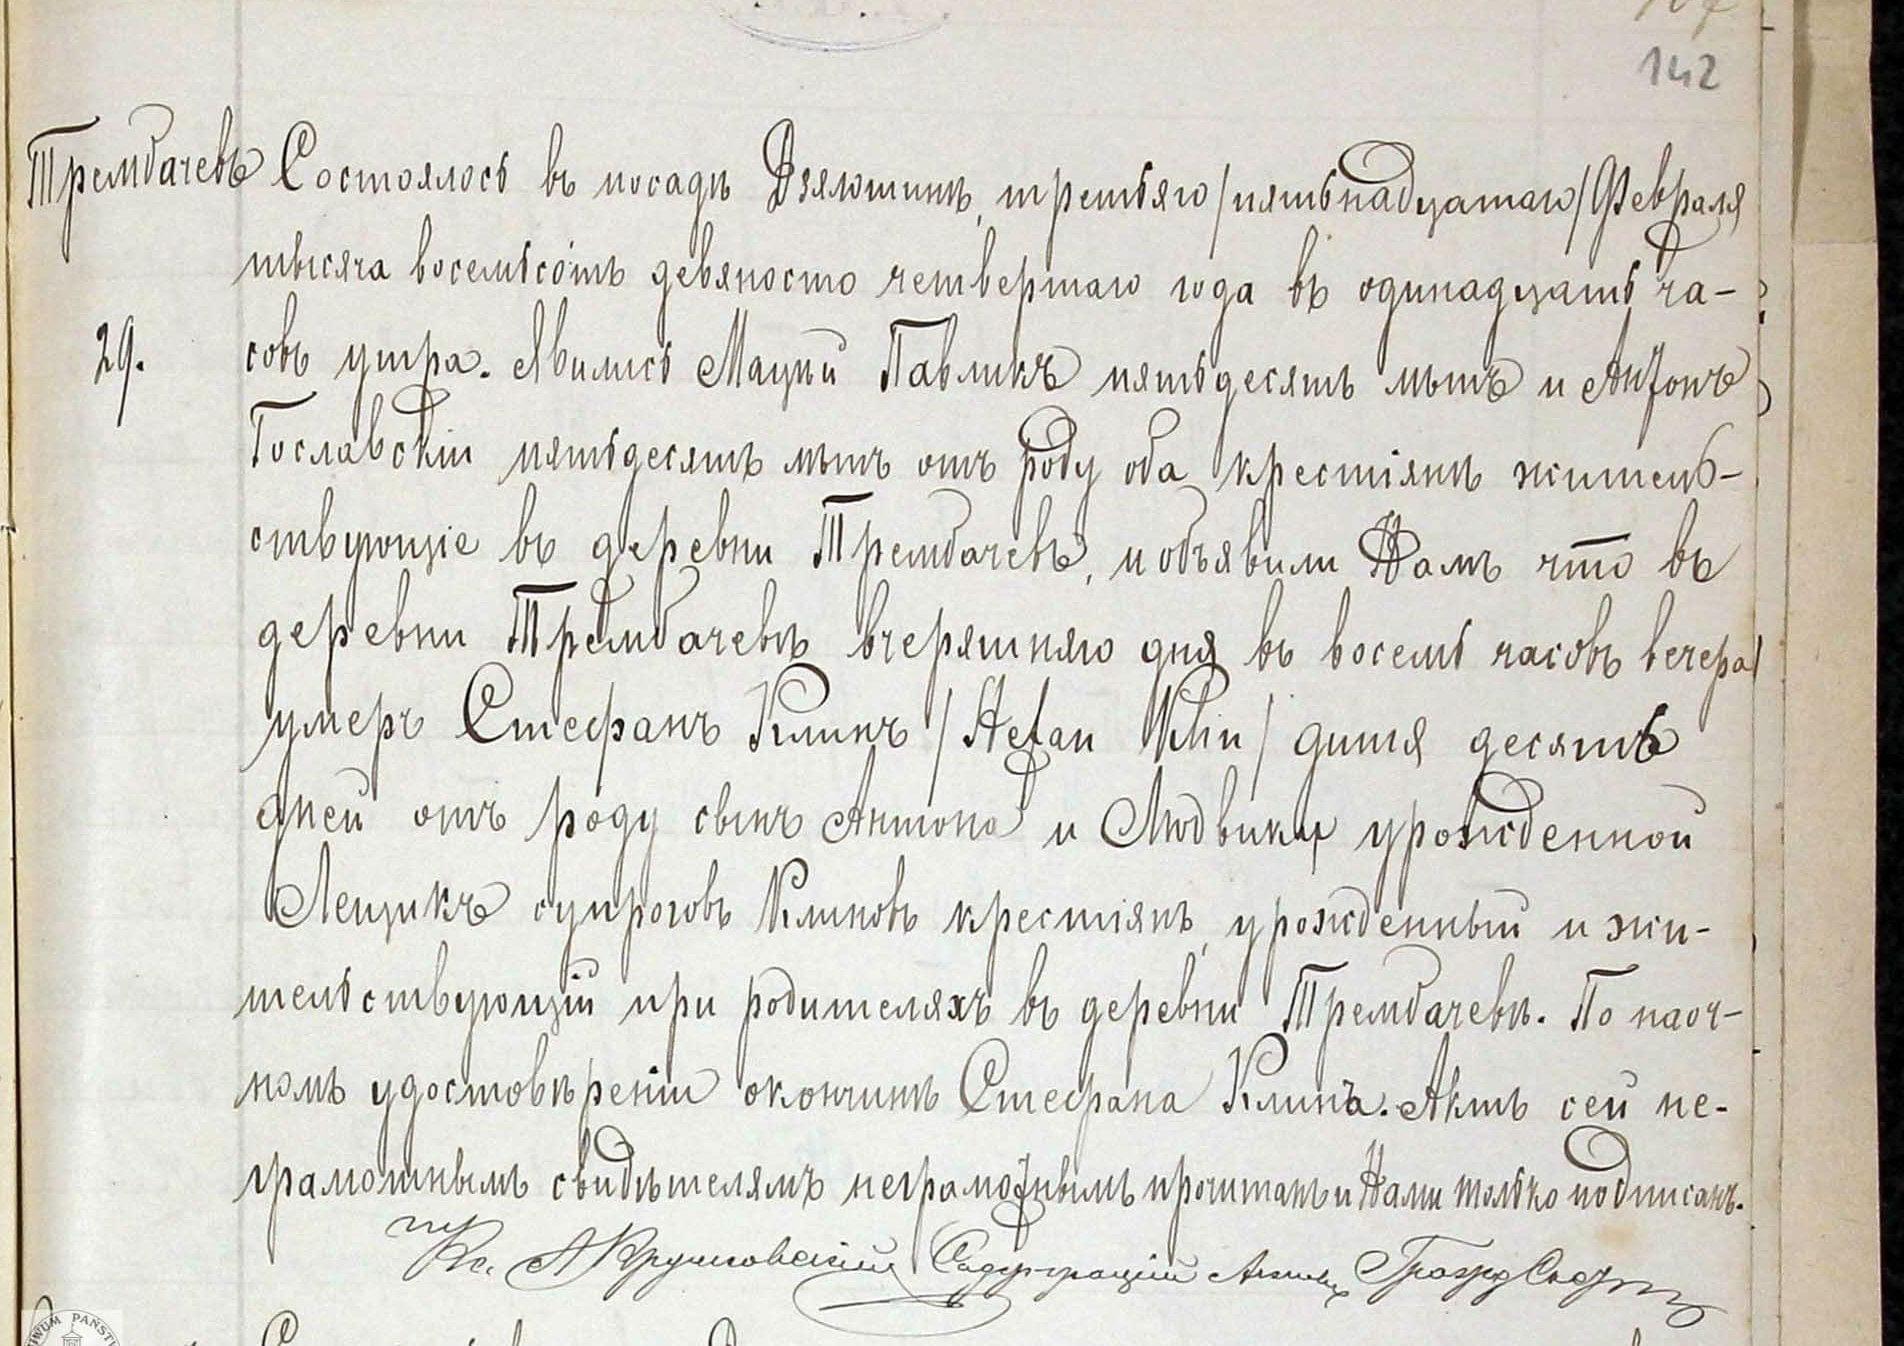 142
Трембачевъ Состоялось въ посадѣ Дзялошинѣ, третьяго /пятьнадцатаго/ Февраля
тысяча восемьсотъ девяносто четвертаго года въ одинадцать ча-
29. совъ утра. Явились Мацѣй Павликъ пятьдесятъ лѣтъ и Антонъ
Гославскій пятьдесятъ лѣтъ отъ роду оба крестіянѣ житель-
ствующіе въ деревни Трембачевѣ, и объявили Намъ что въ
деревни Трембачевѣ вчеряшняго дня въ восемь часовъ вечера
умеръ Стефанъ Клинъ /Stefan Klin/ дитя десять
дней отъ роду сынъ Антона и Людвики урожденной
Лещикъ супроговъ Клиновъ крестіянъ, урожденный и жи-
тельствующій при родителяхъ въ деревни Трембачевѣ. По наоч-
номъ удостовѣреніи окончинѣ Стефана Клина. Актъ сей не-
грамотнымъ свидѣтелямъ неграмотнымъ прочитанъ и Нами только подписанъ.
Кс. А Кручковскій Содержащій Акты Гражд Сост